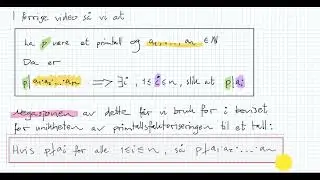 I forrige video så vi at
La p være et primtall og a₁, ..., aₙ ∈ ℕ
Da er
p | a₁·a₂·...·aₙ ⟹ ∃ i, 1 ≤ i ≤ n, slik at p | aᵢ
Negasjonen av dette får vi bruk for i beviset
for unikheten av primtallsfaktoriseringen til et tall:
Hvis p ∤ aᵢ for alle 1 ≤ i ≤ n, så p ∤ a₁·a₂·...·aₙ